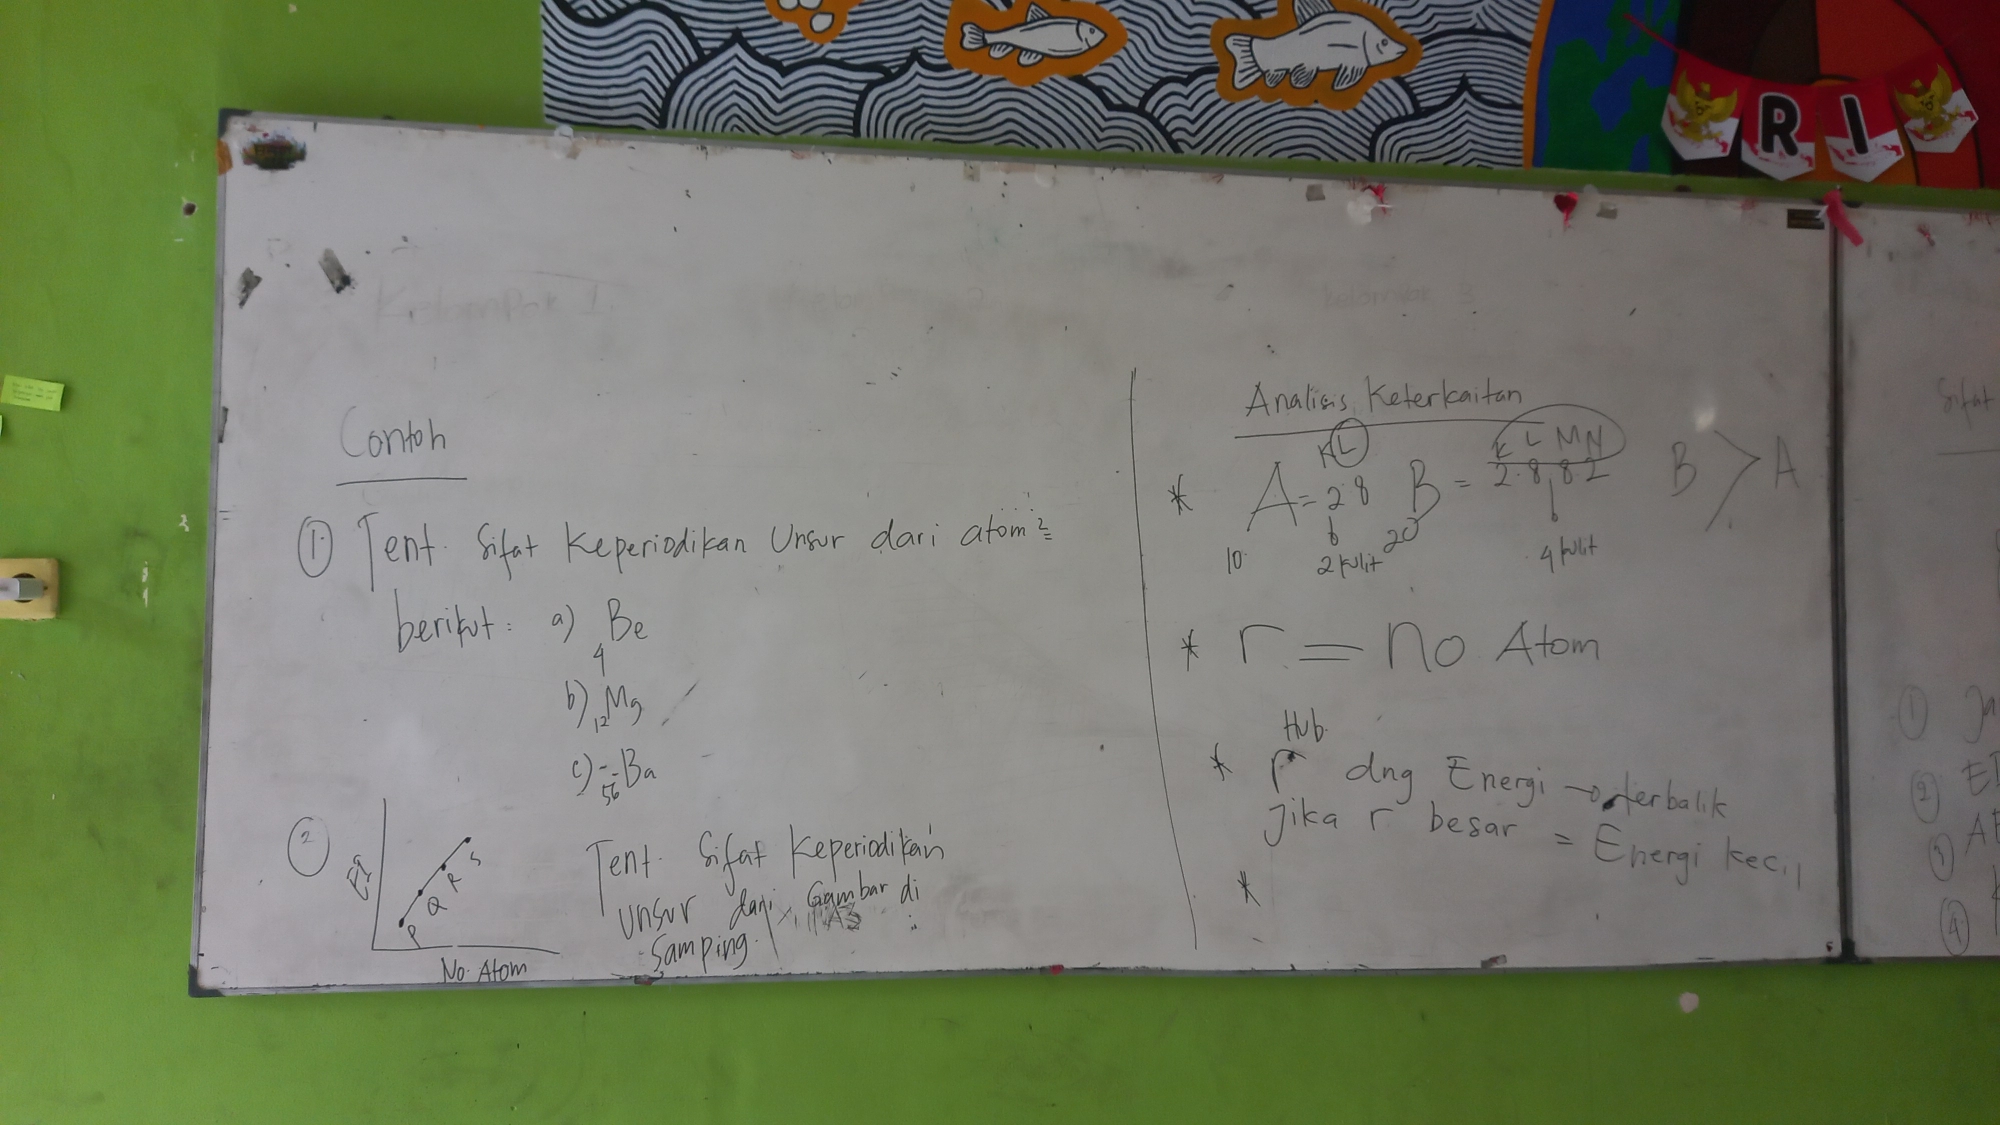 R I
Kelompok 1.
2
kelompok 3
Contoh
1. Tent. Sifat Keperiodikan Unsur dari atom²
berikut: a) 4 Be
b) 12 Mg
c) 56 Ba
2
P Q R S
No. Atom
Tent. Sifat Keperiodikan
unsur dari Gambar di
Samping.
Analisis Keterkaitan
K L
K L M N
* A = 2.8 B = 2.8.8.2 B > A
10. 2 kulit 20 4 kulit
* r = No Atom
Hub.
* r dng Energi → terbalik
Jika r besar = Energi kecil
*
Sifat
1 Ja
2 EI
3
4